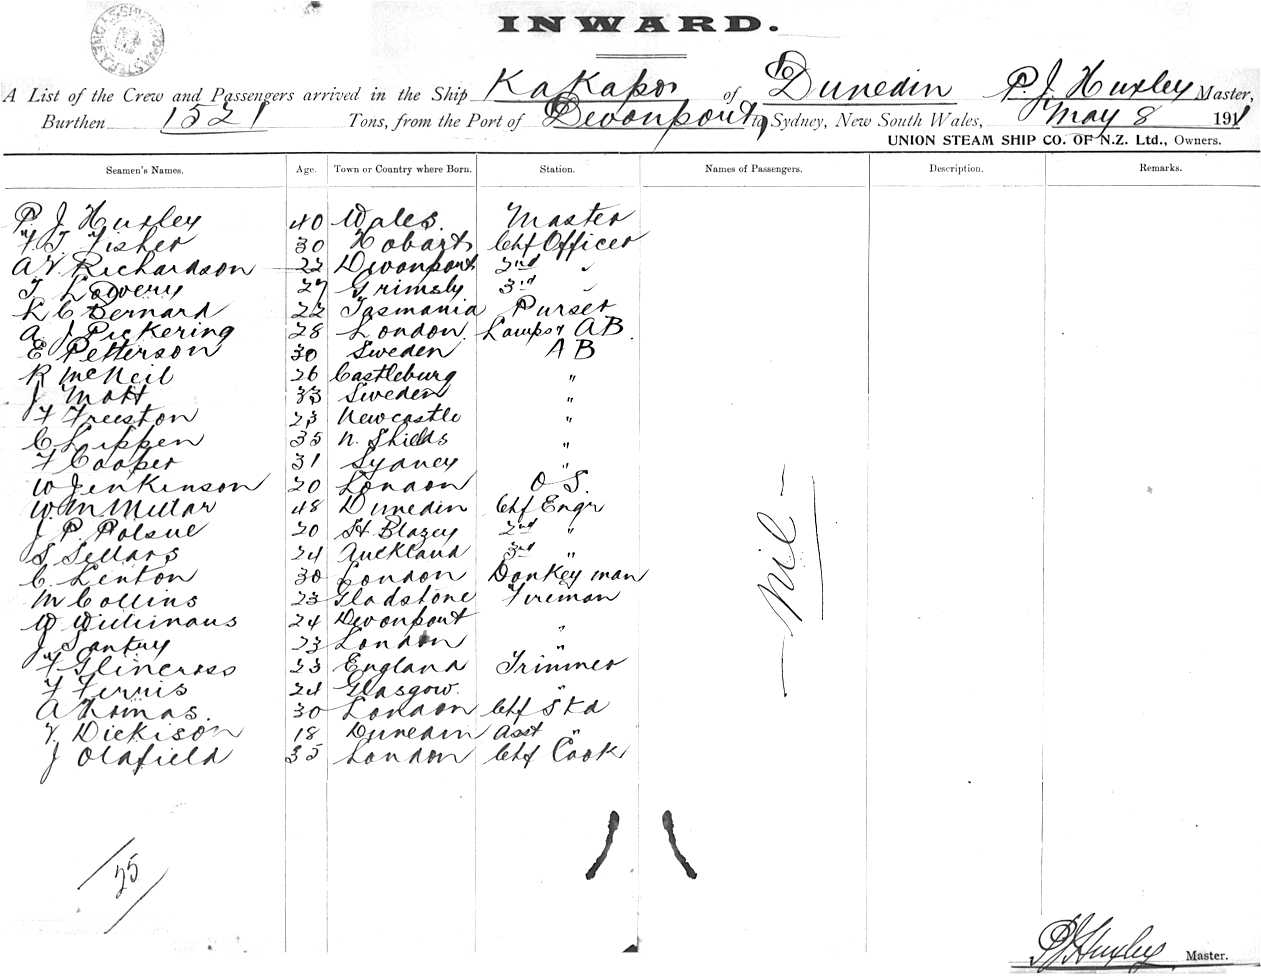 INWARD.
A List of the Crew and Passengers arrived in the Ship Kakapo of Dunedin P. J. Huxley Master,
Burthen 1521 Tons, from the Port of Devonport, to Sydney, New South Wales, May 8 1911
UNION STEAM SHIP CO. OF N.Z. Ltd., Owners.
Seamen's Names. Age. Town or Country where Born. Station. Names of Passengers. Description. Remarks.
P. J. Huxley 40 Wales. Master
F J. Fisher 30 Hobart Chf Officer
A V. Richardson 22 Devonport 2nd "
T Lowery 27 Grimsly 3rd "
L C Bernard 22 Tasmania Purser
A J Pickering 28 London. Lamps & AB.
E Petterson 30 Sweden AB
R McNeil 26 Castleburg "
J Mott 33 Sweden "
F Freeston 23 Newcastle "
C Lippen 35 N. Shields "
F Cooper 31 Sydney "
W Jenkinson 20 London O S.
W. M. Millar 48 Dunedin Chf Engr
J. P. Polsue 20 St Blazey 2nd "
S Sellars 24 Auckland 3rd "
C. Lenton 30 London Donkey man
M Collins 23 Gladstone Fireman
W Williams 24 Devonport "
J Santry 23 London "
F Glincross 23 England Trimmer
F Ferris 24 Glasgow. "
A Thomas. 30 London Chf Std
V. Dickison 18 Dunedin Asst "
J Oldfield 35 London Chf Cook
Nil
25
P J Huxley Master.